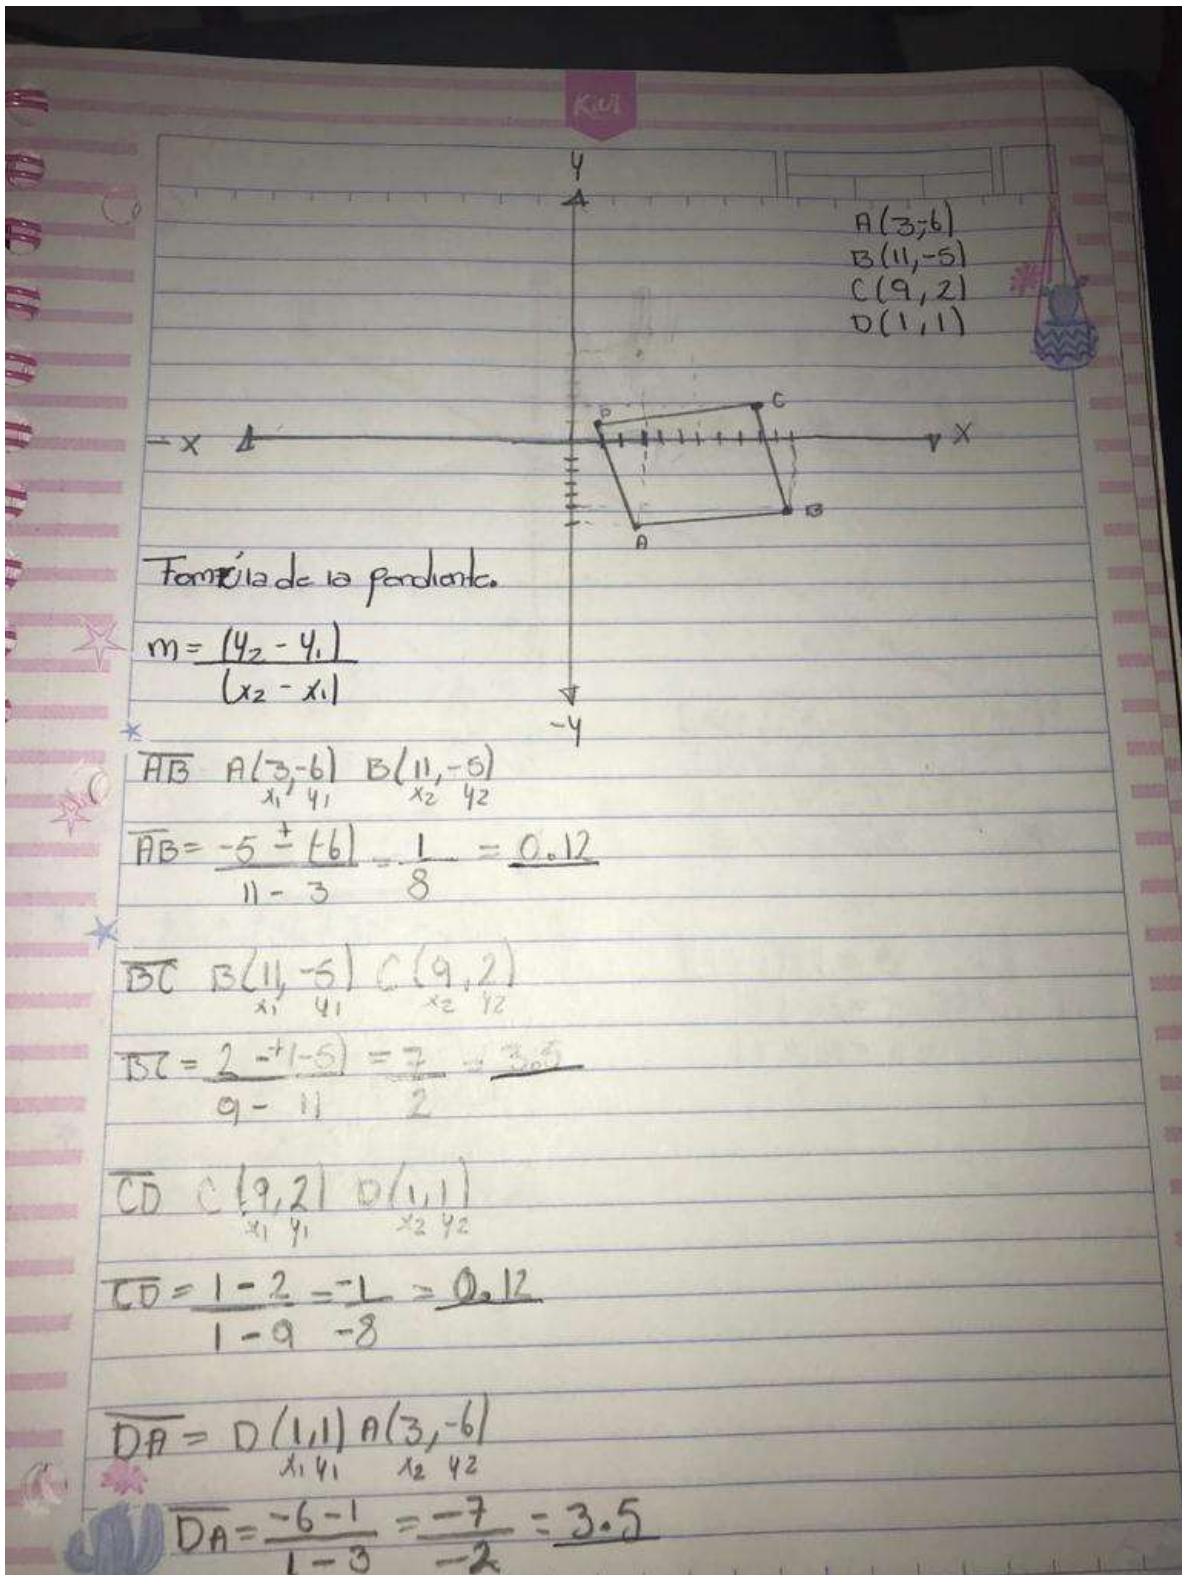 Kiwi
y
A(3,-6)
B(11,-5)
C(9,2)
D(1,1)
C
-x
x
B
A
Formúla de la pendiente.
m= (y2 - y1)
(x2 - x1)
-y
AB A(3,-6) B(11,-5)
x1 y1 x2 y2
AB = -5 ± (-6) = 1 = 0.12
11 - 3 8
BC B(11,-5) C(9,2)
x1 y1 x2 y2
BC = 2 -+(-5) = 7 = 3.5
9 - 11 2
CD C(9,2) D(1,1)
x1 y1 x2 y2
CD = 1 - 2 = -1 = 0.12
1 - 9 -8
DA = D(1,1) A(3,-6)
x1 y1 x2 y2
DA = -6 - 1 = -7 = 3.5
1 - 3 -2